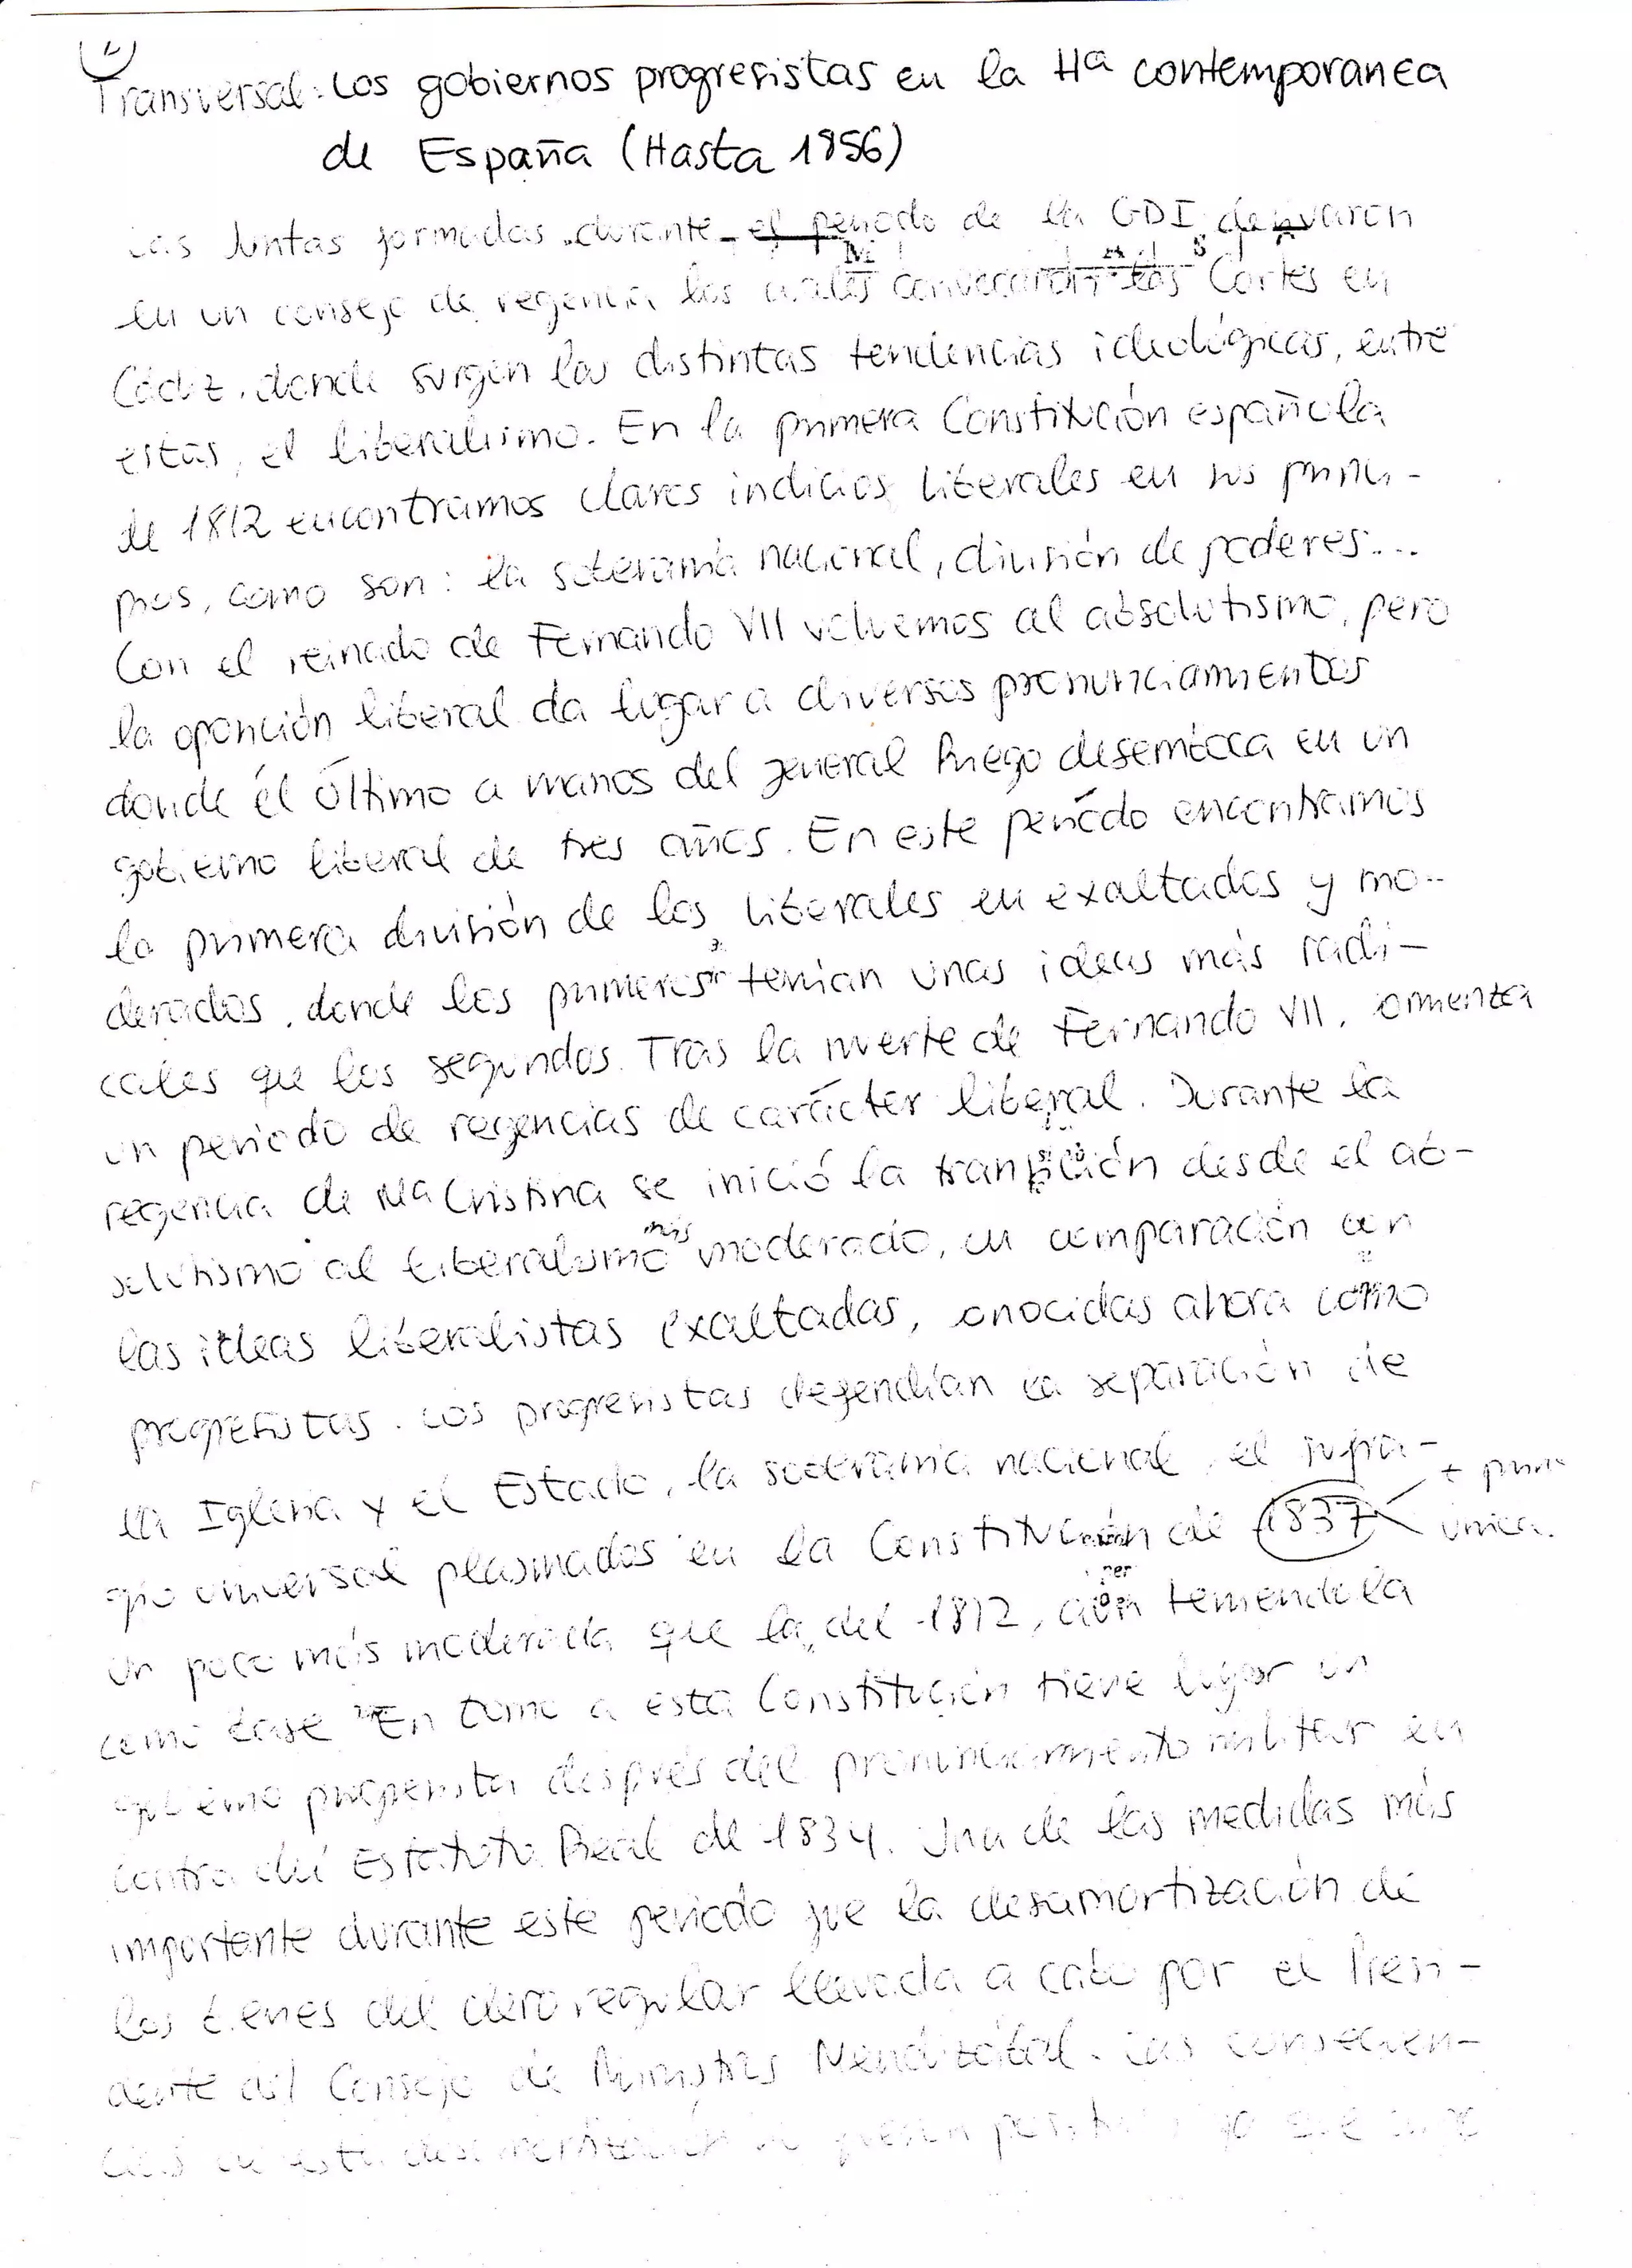 Transversal: Los gobiernos progresistas en la Hª contemporanea
de España (Hasta 1856)
Las Juntas formadas durante el periodo de la GDI derivaron
en un consejo de regencia los cuales convocaron las Cortes en
Cádiz, donde surgen las distintas tendencias ideológicas, entre
estas, el liberalismo. En la primera Constitución española
de 1812 encontramos claros indicios liberales en sus princi-
pios, como son: la soberanía nacional, división de poderes...
Con el reinado de Fernando VII volvemos al absolutismo, pero
la oposición liberal da lugar a diversos pronunciamientos
donde él último a manos del general Riego desemboca en un
gobierno liberal de tres años. En este periodo encontramos
la primera división de los liberales en exaltados y mo-
derados, donde los primeros tenían unas ideas más radi-
cales que los segundos. Tras la muerte de Fernando VII, comienza
un periodo de regencias de carácter liberal. Durante la
regencia de Mª Cristina se inició la transición desde el ab-
solutismo al liberalismo más moderado, en comparación con
las ideas liberalistas exaltadas, conocidas ahora como
progresistas. Los progresistas defendían la separación de
la Iglesia y el Estado, la soberanía nacional, el sufra-
gio universal plasmados en la Constitución de 1837
única.
un poco más moderada que la del 1812, aún teniendola
como base. En torno a esta Constitución tiene lugar un
gobierno progresista después del pronunciamiento militar en
contra del Estatuto Real de 1834. Una de las medidas más
importante durante este periodo fue la desamortización de
los bienes del clero regular llevada a cabo por el Presi-
dente del Consejo de Ministros Mendizábal. Las consecuen-
cias de esta desamortización